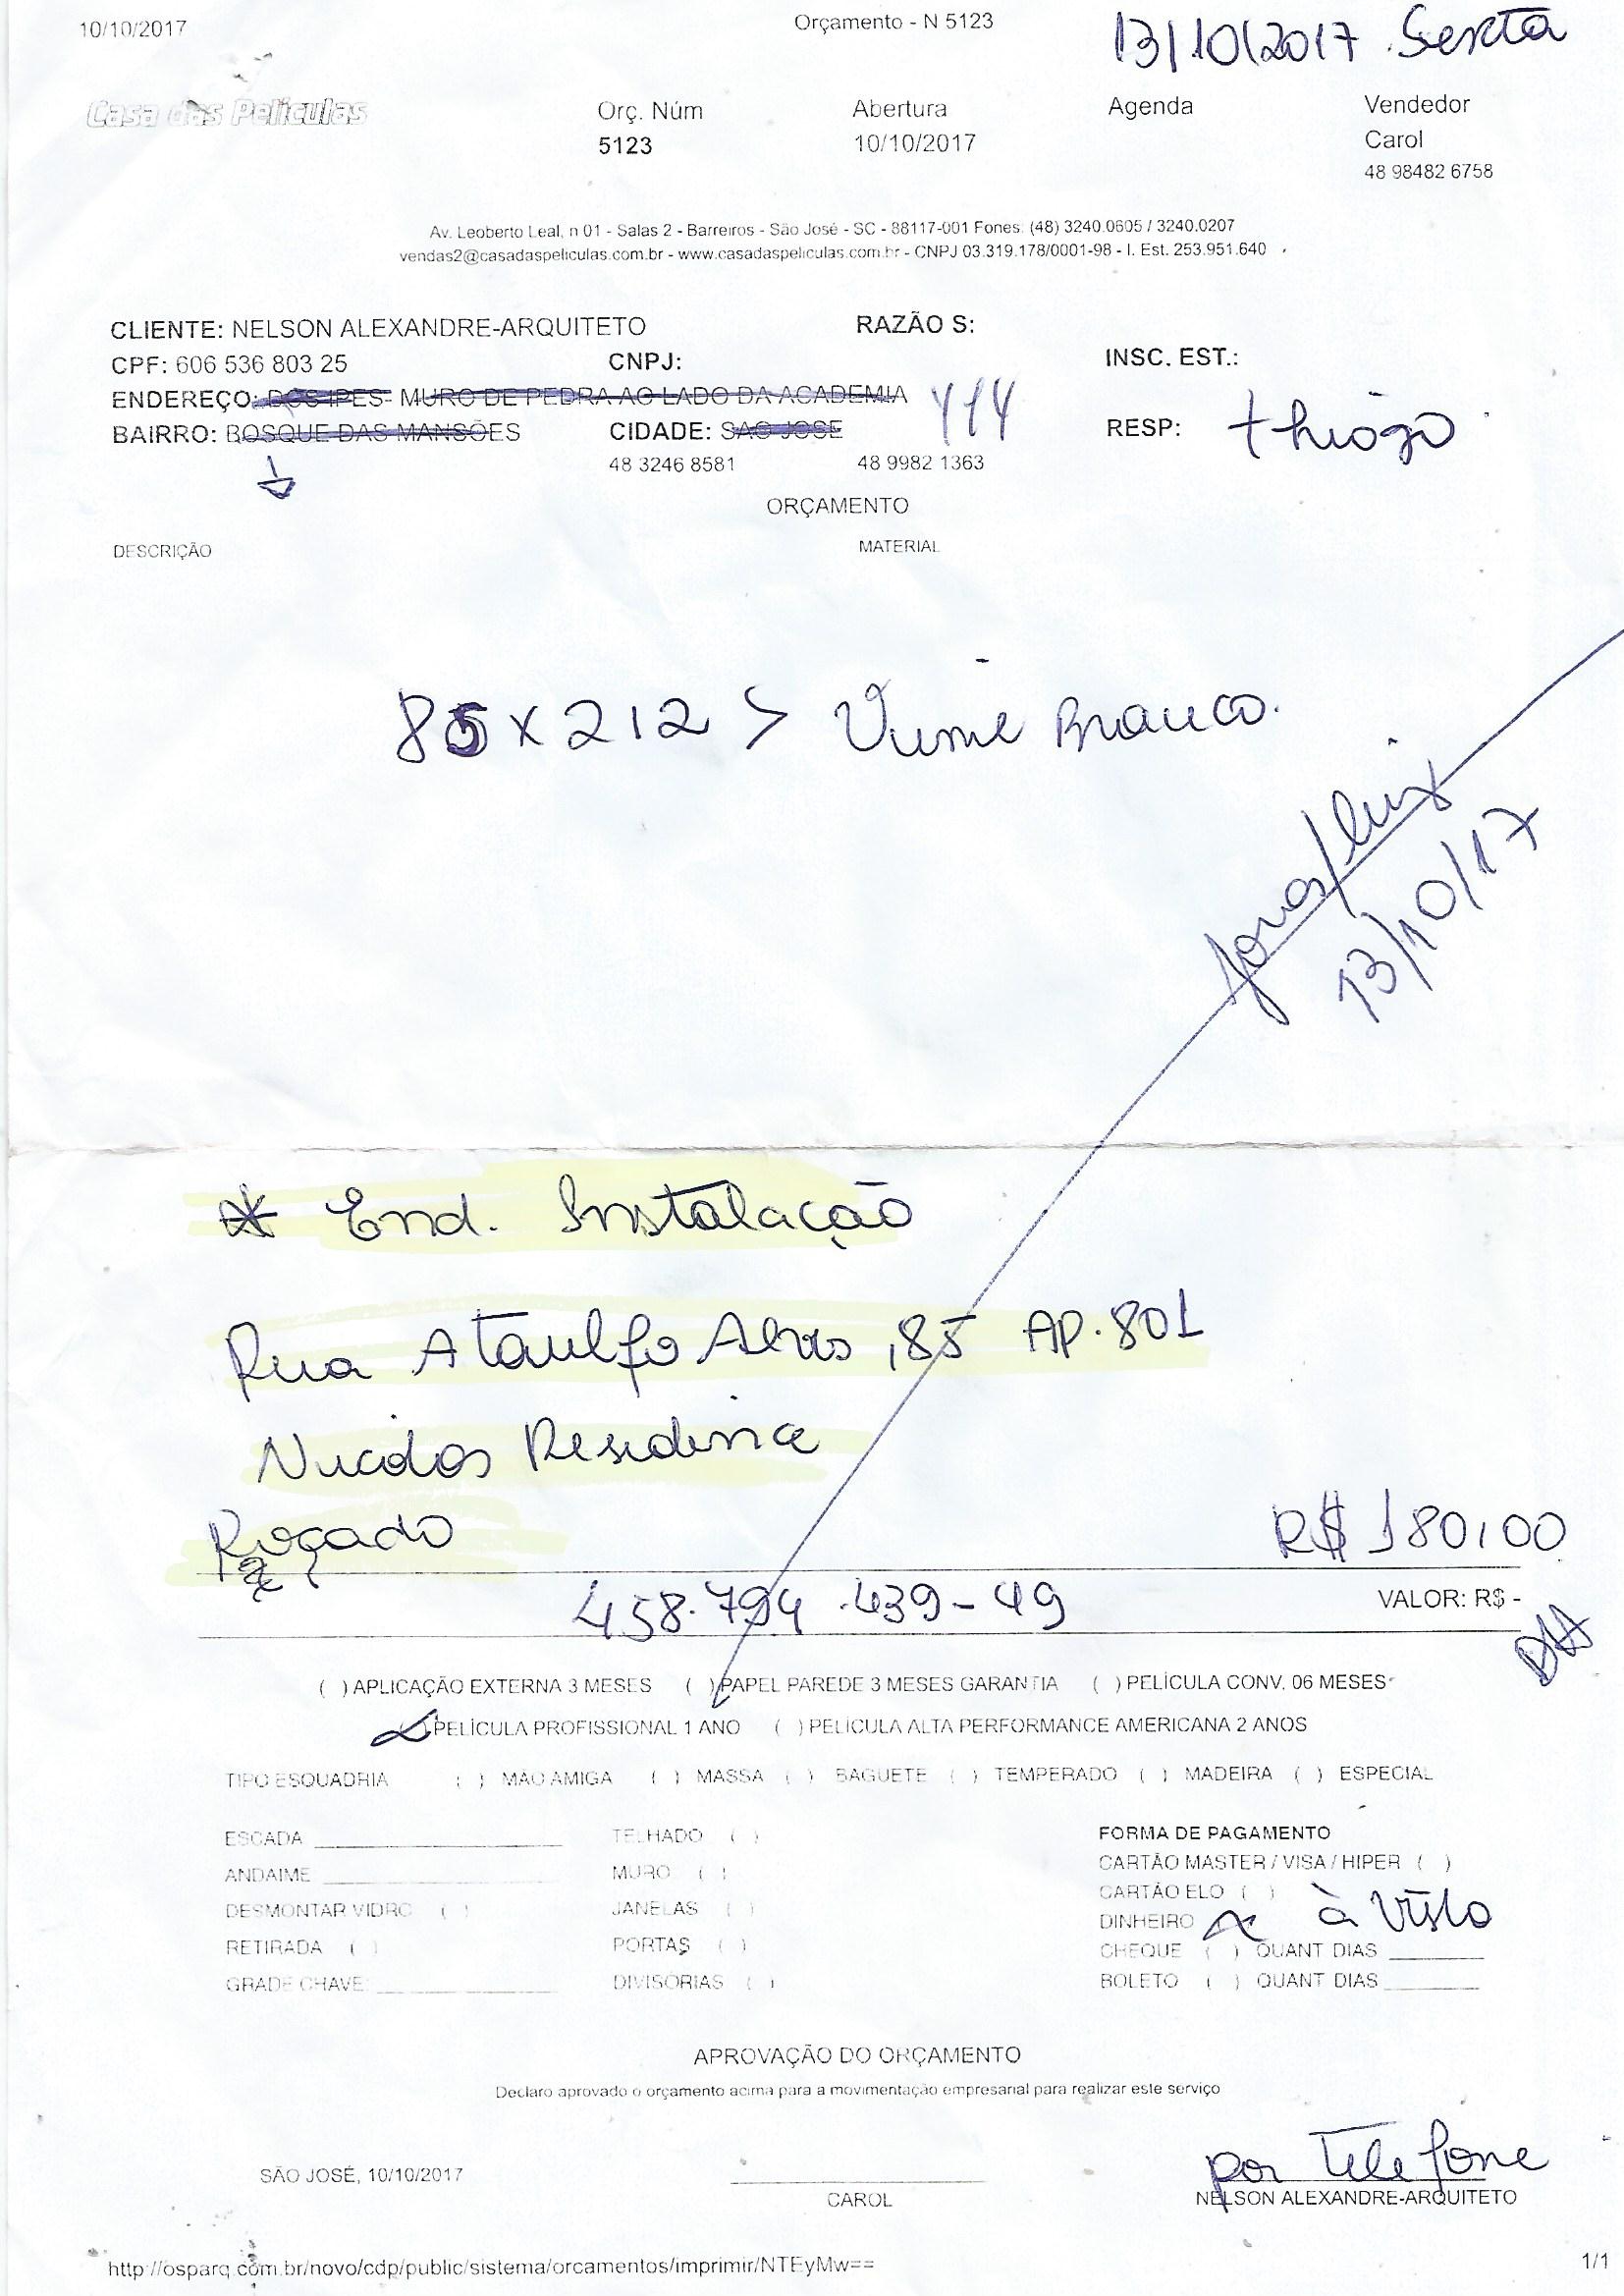 10/10/2017 Orçamento - N 5123 13/10/2017 Sexta
Casa das Películas Orç. Núm Abertura Agenda Vendedor
5123 10/10/2017 Carol
48 98482 6758
Av. Leoberto Leal, n 01 - Salas 2 - Barreiros - São José - SC - 88117-001 Fones: (48) 3240.0605 / 3240.0207
vendas2@casadaspeliculas.com.br - www.casadaspeliculas.com.br - CNPJ 03.319.178/0001-98 - I. Est. 253.951.640
CLIENTE: NELSON ALEXANDRE-ARQUITETO RAZÃO S:
CPF: 606 536 803 25 CNPJ: INSC. EST.:
ENDEREÇO: DOS IPES- MURO DE PEDRA AO LADO DA ACADEMIA
BAIRRO: BOSQUE DAS MANSÕES CIDADE: SAO JOSE RESP: Thiago
48 3246 8581 48 9982 1363
ORÇAMENTO
DESCRIÇÃO MATERIAL
85 x 212 > Vime Branco.
Jonas/Luiz
13/10/17
* End. Instalação
Rua Ataulfo Alves, 85 AP. 801
Residence
Roçado R$ 180,00
458.794.439-49 VALOR: R$ -
( ) APLICAÇÃO EXTERNA 3 MESES ( ) PAPEL PAREDE 3 MESES GARANTIA ( ) PELÍCULA CONV. 06 MESES
( ) PELÍCULA PROFISSIONAL 1 ANO ( ) PELÍCULA ALTA PERFORMANCE AMERICANA 2 ANOS
TIPO ESQUADRIA ( ) MAO AMIGA ( ) MASSA ( ) BAGUETE ( ) TEMPERADO ( ) MADEIRA ( ) ESPECIAL
ESCADA TELHADO ( ) FORMA DE PAGAMENTO
ANDAIME MURO ( ) CARTÃO MASTER / VISA / HIPER ( )
DESMONTAR VIDRO ( ) JANELAS ( ) CARTÃO ELO ( )
RETIRADA ( ) PORTAS ( ) DINHEIRO x à vista
GRADE CHAVE: DIVISORIAS ( ) CHEQUE ( ) QUANT DIAS
BOLETO ( ) QUANT DIAS
APROVAÇÃO DO ORÇAMENTO
Declaro aprovado o orçamento acima para a movimentação empresarial para realizar este serviço
por Telefone
SÃO JOSÉ, 10/10/2017 CAROL NELSON ALEXANDRE-ARQUITETO
http://osparq.com.br/novo/cdp/public/sistema/orcamentos/imprimir/NTEyMw== 1/1